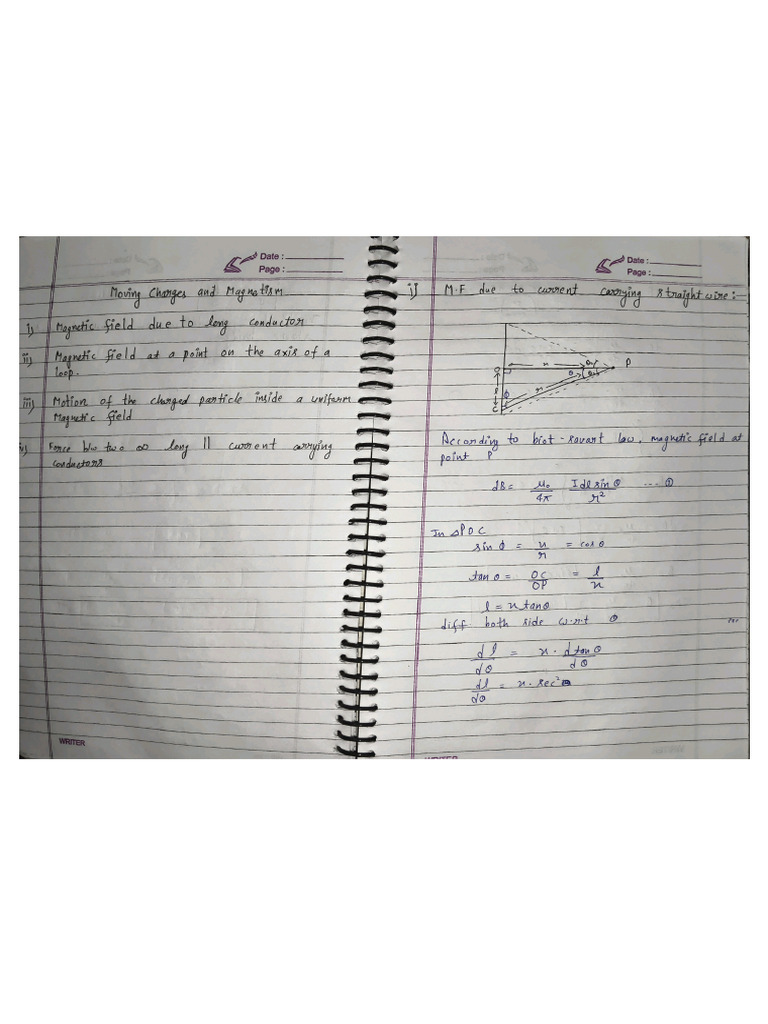 Date :
Page :
Moving Charges and Magnetism
i) Magnetic field due to long conductor
ii) Magnetic field at a point on the axis of a
loop.
iii) Motion of the charged particle inside a uniform
Magnetic field
iv) Force b/w two ∞ long || current carrying
conductors
WRITER
Date :
Page :
i] M.F due to current carrying straight wire :
P
x
O
l
r
θ
ϕ
C
According to biot-savart law, magnetic field at
point P
dB = μ₀/4π Idl sin θ/r² --- ①
In △POC
sin ϕ = x/r = cos θ
tan θ = OC/OP = l/x
l = x tan θ
diff both side w.r.t θ
dl/dθ = x · d tan θ/dθ
dl/dθ = x · sec² θ
WRITER